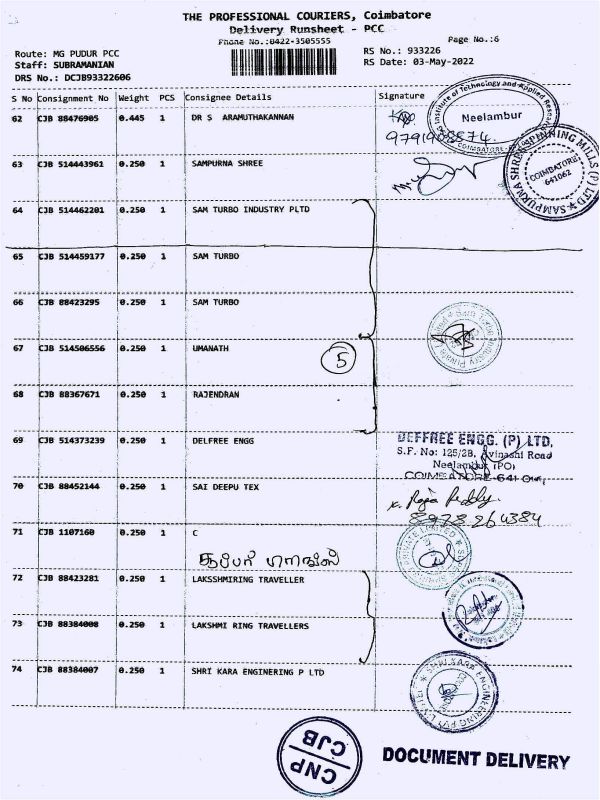 THE PROFESSIONAL COURIERS, Coimbatore
Delivery Runsheet - PCC
Phone No.:0422-3505555
Page No.:6
Route: MG PUDUR PCC
RS No.: 933226
Staff: SUBRAMANIAN
RS Date: 03-May-2022
DRS No.: DCJB93322606
S No Consignment No Weight PCS Consignee Details Signature
62 CJB 88476905 0.445 1 DR S ARAMUTHAKANNAN
Institute of Technology and Applied Research
Neelambur
COIMBATORE
63 CJB 514443961 0.250 1 SAMPURNA SHREE
SAMPURNA SHREE SPINNING MILLS (P) LTD
COIMBATORE
641062
64 CJB 514462201 0.250 1 SAM TURBO INDUSTRY PLTD
65 CJB 514459177 0.250 1 SAM TURBO
66 CJB 88423295 0.250 1 SAM TURBO
Sam Turbo Industry Private Limited
67 CJB 514506556 0.250 1 UMANATH
5
68 CJB 88367671 0.250 1 RAJENDRAN
69 CJB 514373239 0.250 1 DELFREE ENGG
DEFFREE ENGG. (P) LTD,
S.F. No: 125/2B, Avinashi Road
Neelambur (PO)
COIMBATORE-641
70 CJB 88452144 0.250 1 SAI DEEPU TEX
K. Raja Reddy.
8978264384
71 CJB 1107160 0.250 1 C
PRIVATE LIMITED
72 CJB 88423281 0.250 1 LAKSSHMIRING TRAVELLER
73 CJB 88384008 0.250 1 LAKSHMI RING TRAVELLERS
74 CJB 88384007 0.250 1 SHRI KARA ENGINERING P LTD
SHRI KARA ENGINEERING PVT LTD
CNP
CJB
DOCUMENT DELIVERY